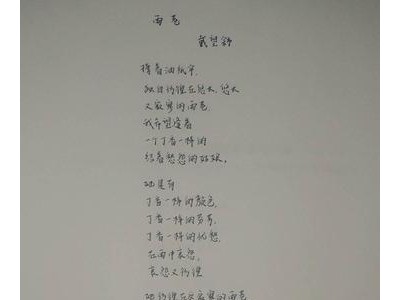 雨巷
戴望舒
撑着油纸伞,
独自彷徨在悠长、悠长
又寂寥的雨巷
我希望逢着
一个丁香一样的
结着愁怨的姑娘。
她是有
丁香一样的颜色
丁香一样的芬芳,
丁香一样的忧愁,
在雨中哀怨,
哀怨又彷徨
她彷徨在这寂寥的雨巷